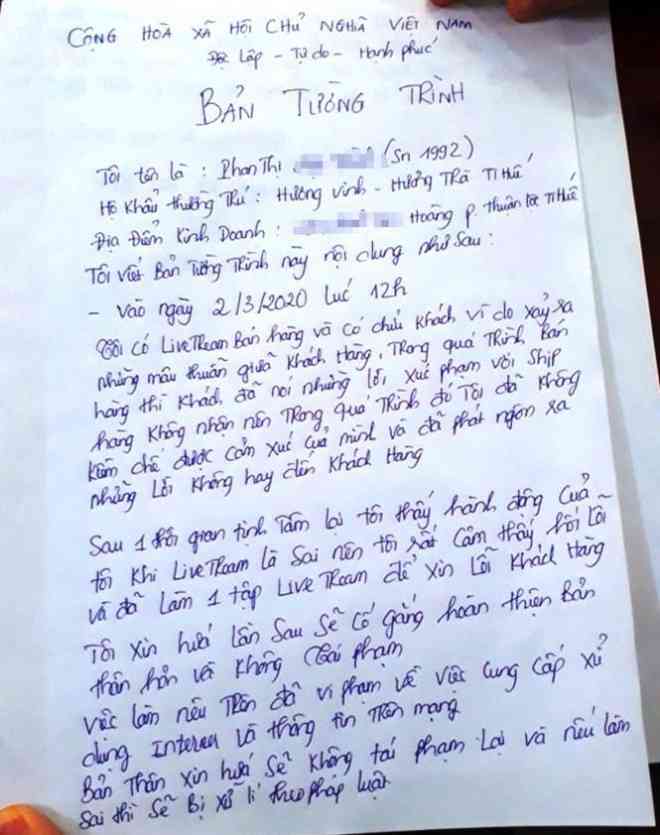 CỘNG HOÀ XÃ HỘI CHỦ NGHĨA VIỆT NAM
Độc Lập - Tự do - Hạnh phúc
BẢN TƯỜNG TRÌNH
Tôi tên là : Phan Thị (Sn 1992)
Hộ Khẩu thường Trú : Hương Vinh - Hương Trà TT Huế
Địa Điểm Kinh Doanh : Hoàng p. Thuận lộc TT Huế
Tôi viết Bản Tường Trình này nội dung như sau :
- Vào ngày 2/3/2020 lúc 12h
Tôi có LiveTream Bán hàng và có chửi khách vì do xảy ra
những mâu thuẩn giữa khách hàng, Trong quá Trình Bán
hàng thì khách đã nói những lời xúc phạm với Ship
hàng không nhận nên Trong quá Trình đó Tôi đã không
kiềm chế được cảm xúc của mình và đã phát ngôn ra
những Lời không hay đến khách Hàng
Sau 1 thời gian tịnh Tâm lại tôi thấy hành động của
tôi khi LiveTream là Sai nên tôi rất cảm thấy hối lỗi
và đã làm 1 tập LiveTream để xin Lỗi khách Hàng
Tôi xin hứa lần sau sẽ cố gắng hoàn thiện Bản
thân hơn và không tái phạm
việc làm nêu Trên đã vi phạm về việc cung cấp xử
dụng Interen và thông tin Trên mạng
Bản Thân xin hứa sẽ không tái phạm Lại và nếu làm
sai thì sẽ Bị xử lí theo pháp luật